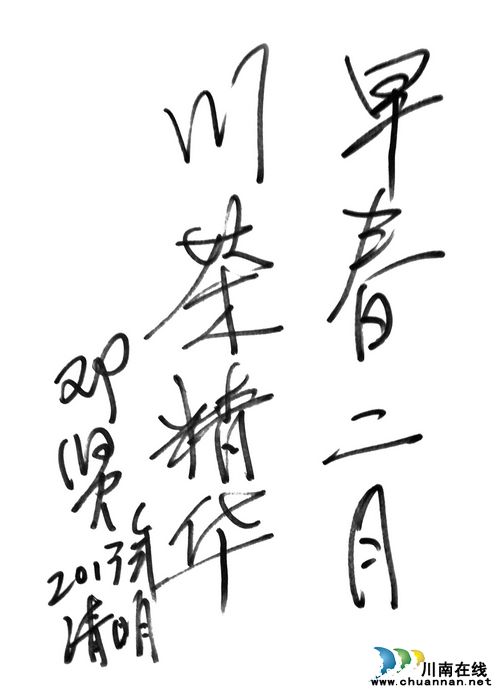 早春二月
川茶精华
邓贤
2013年
清明
川南在线
www.chuannan.net